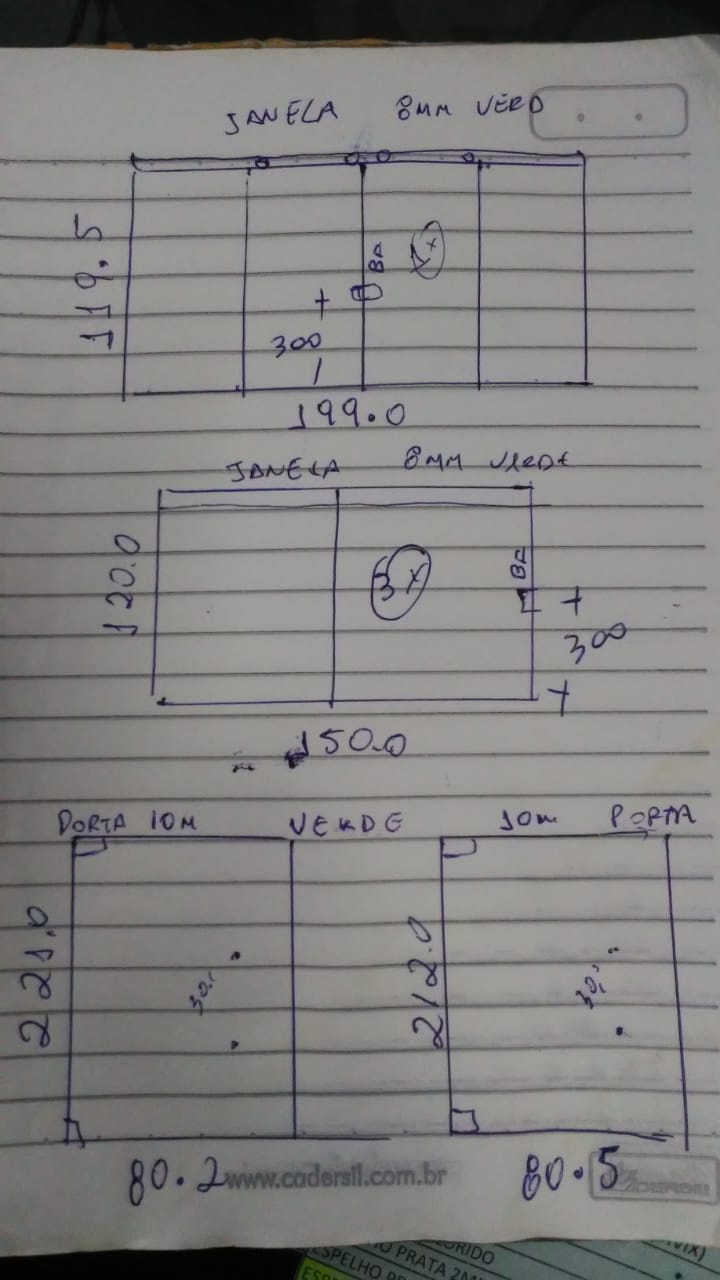 JANELA 8MM VERD
119.5
BA
1x
300
199.0
JANELA 8MM VERDE
120.0
3x
BA
300
150.0
PORTA 10M VERDE 10m PORTA
221.0
30
212.0
30
80.2
www.cadersil.com.br
80.5
CADERSIL
ORIDO
O PRATA 2M
ESPELHO
ESPE